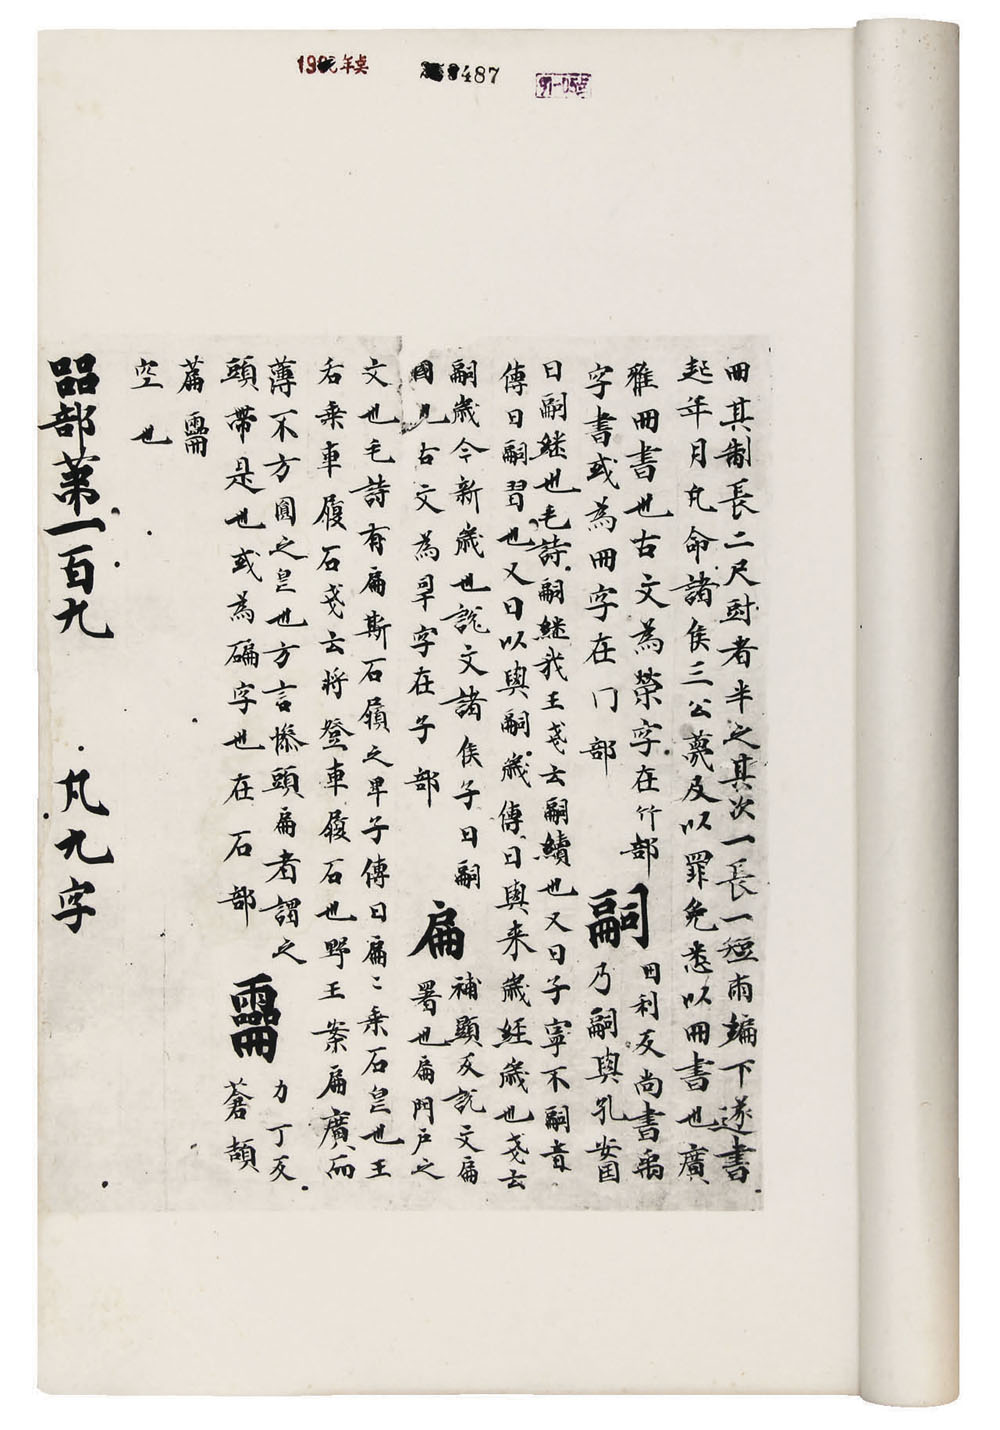 487
冊其制長二尺尌者半之其次一長一短兩編下遂書
起年月凡命諸侯三公薨及以罪免悉以冊書也廣
雅冊書也古文為字在竹部
字書或為冊字在冂部
嗣
囙利反尚書禹
乃嗣與孔安囯
曰嗣継也毛詩嗣継我王戔云嗣續也又曰子寧不嗣音
傳曰嗣習也又曰以興嗣歳傳曰興来歳経歳也戔云
嗣歳今新歳也說文諸侯子曰嗣
國也古文為字在子部
扁
補顯反說文扁
署也扁門戶之
文也毛詩有扁斯石履之卑子傳曰扁〻乗石皃也王
后乗車履石戔云将登車履石也野王案扁廣而
薄不方圓之皃也方言幧頭扁者謂之
頭帶是也或為碥字也在石部
力丁反
蒼頡
篇
空也
㗊部苐一百九 凡九字